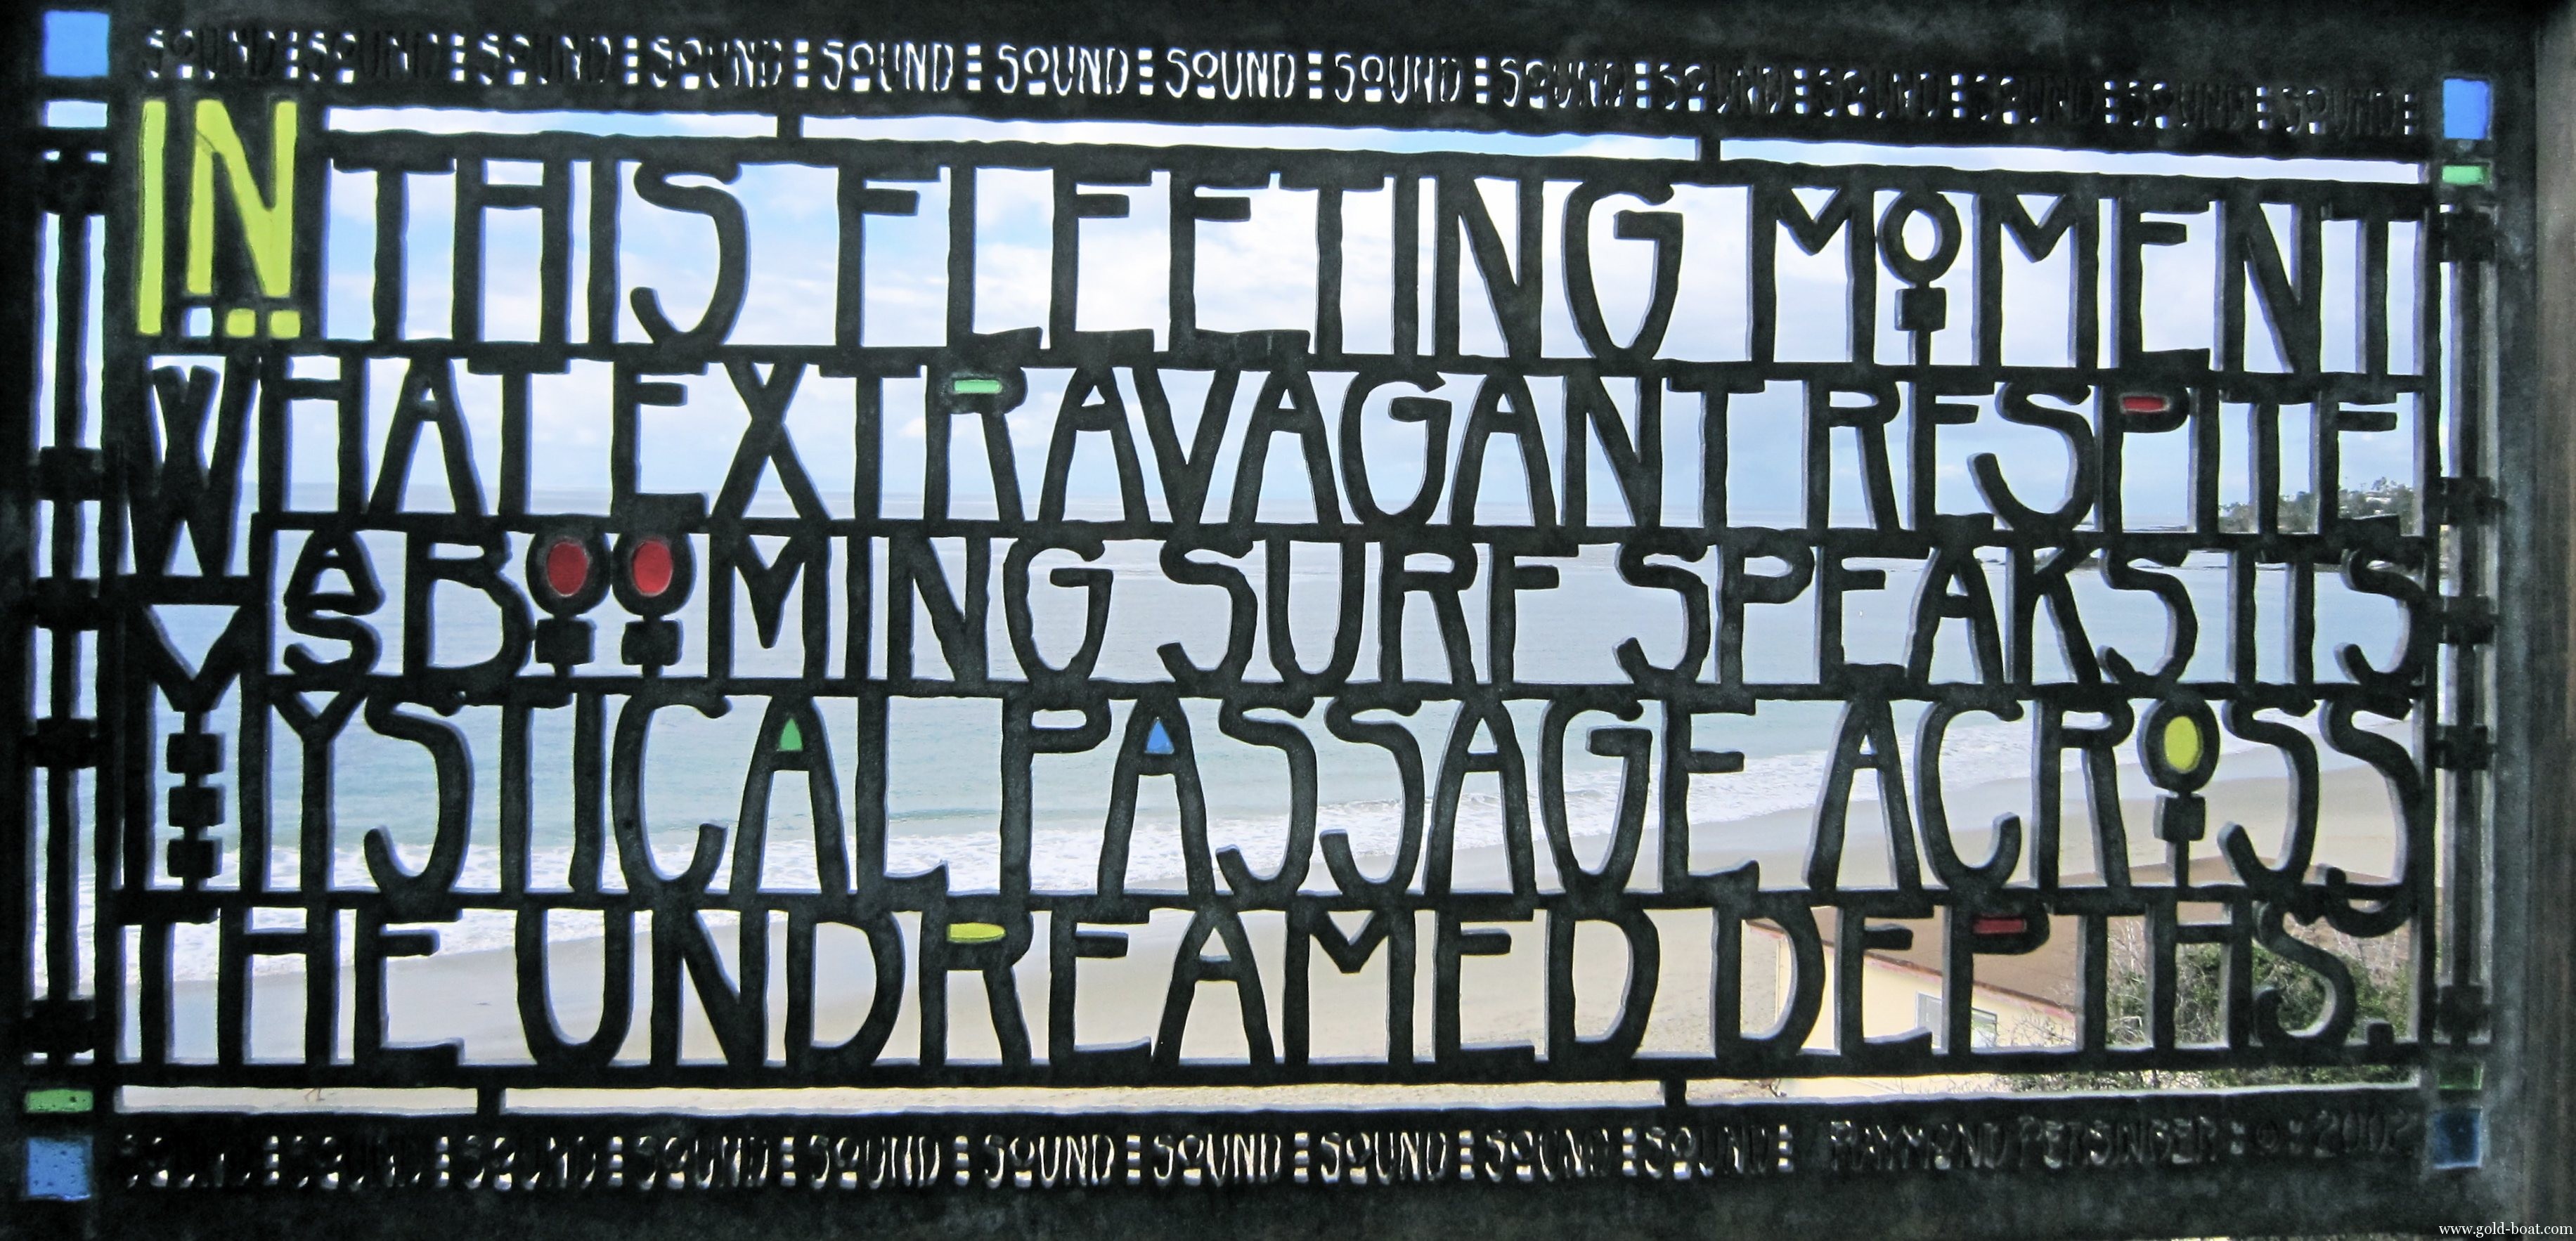 SOUND SOUND SOUND SOUND SOUND SOUND SOUND SOUND SOUND SOUND SOUND SOUND SOUND SOUND
IN THIS FLEETING MOMENT
WHAT EXTRAVAGANT RESPITE
AS BOOMING SURF SPEAKS ITS
MYSTICAL PASSAGE ACROSS
THE UNDREAMED DEPTHS.
SOUND SOUND SOUND SOUND SOUND SOUND SOUND SOUND SOUND SOUND RAYMOND PERSINGER © 2002
www.gold-boat.com